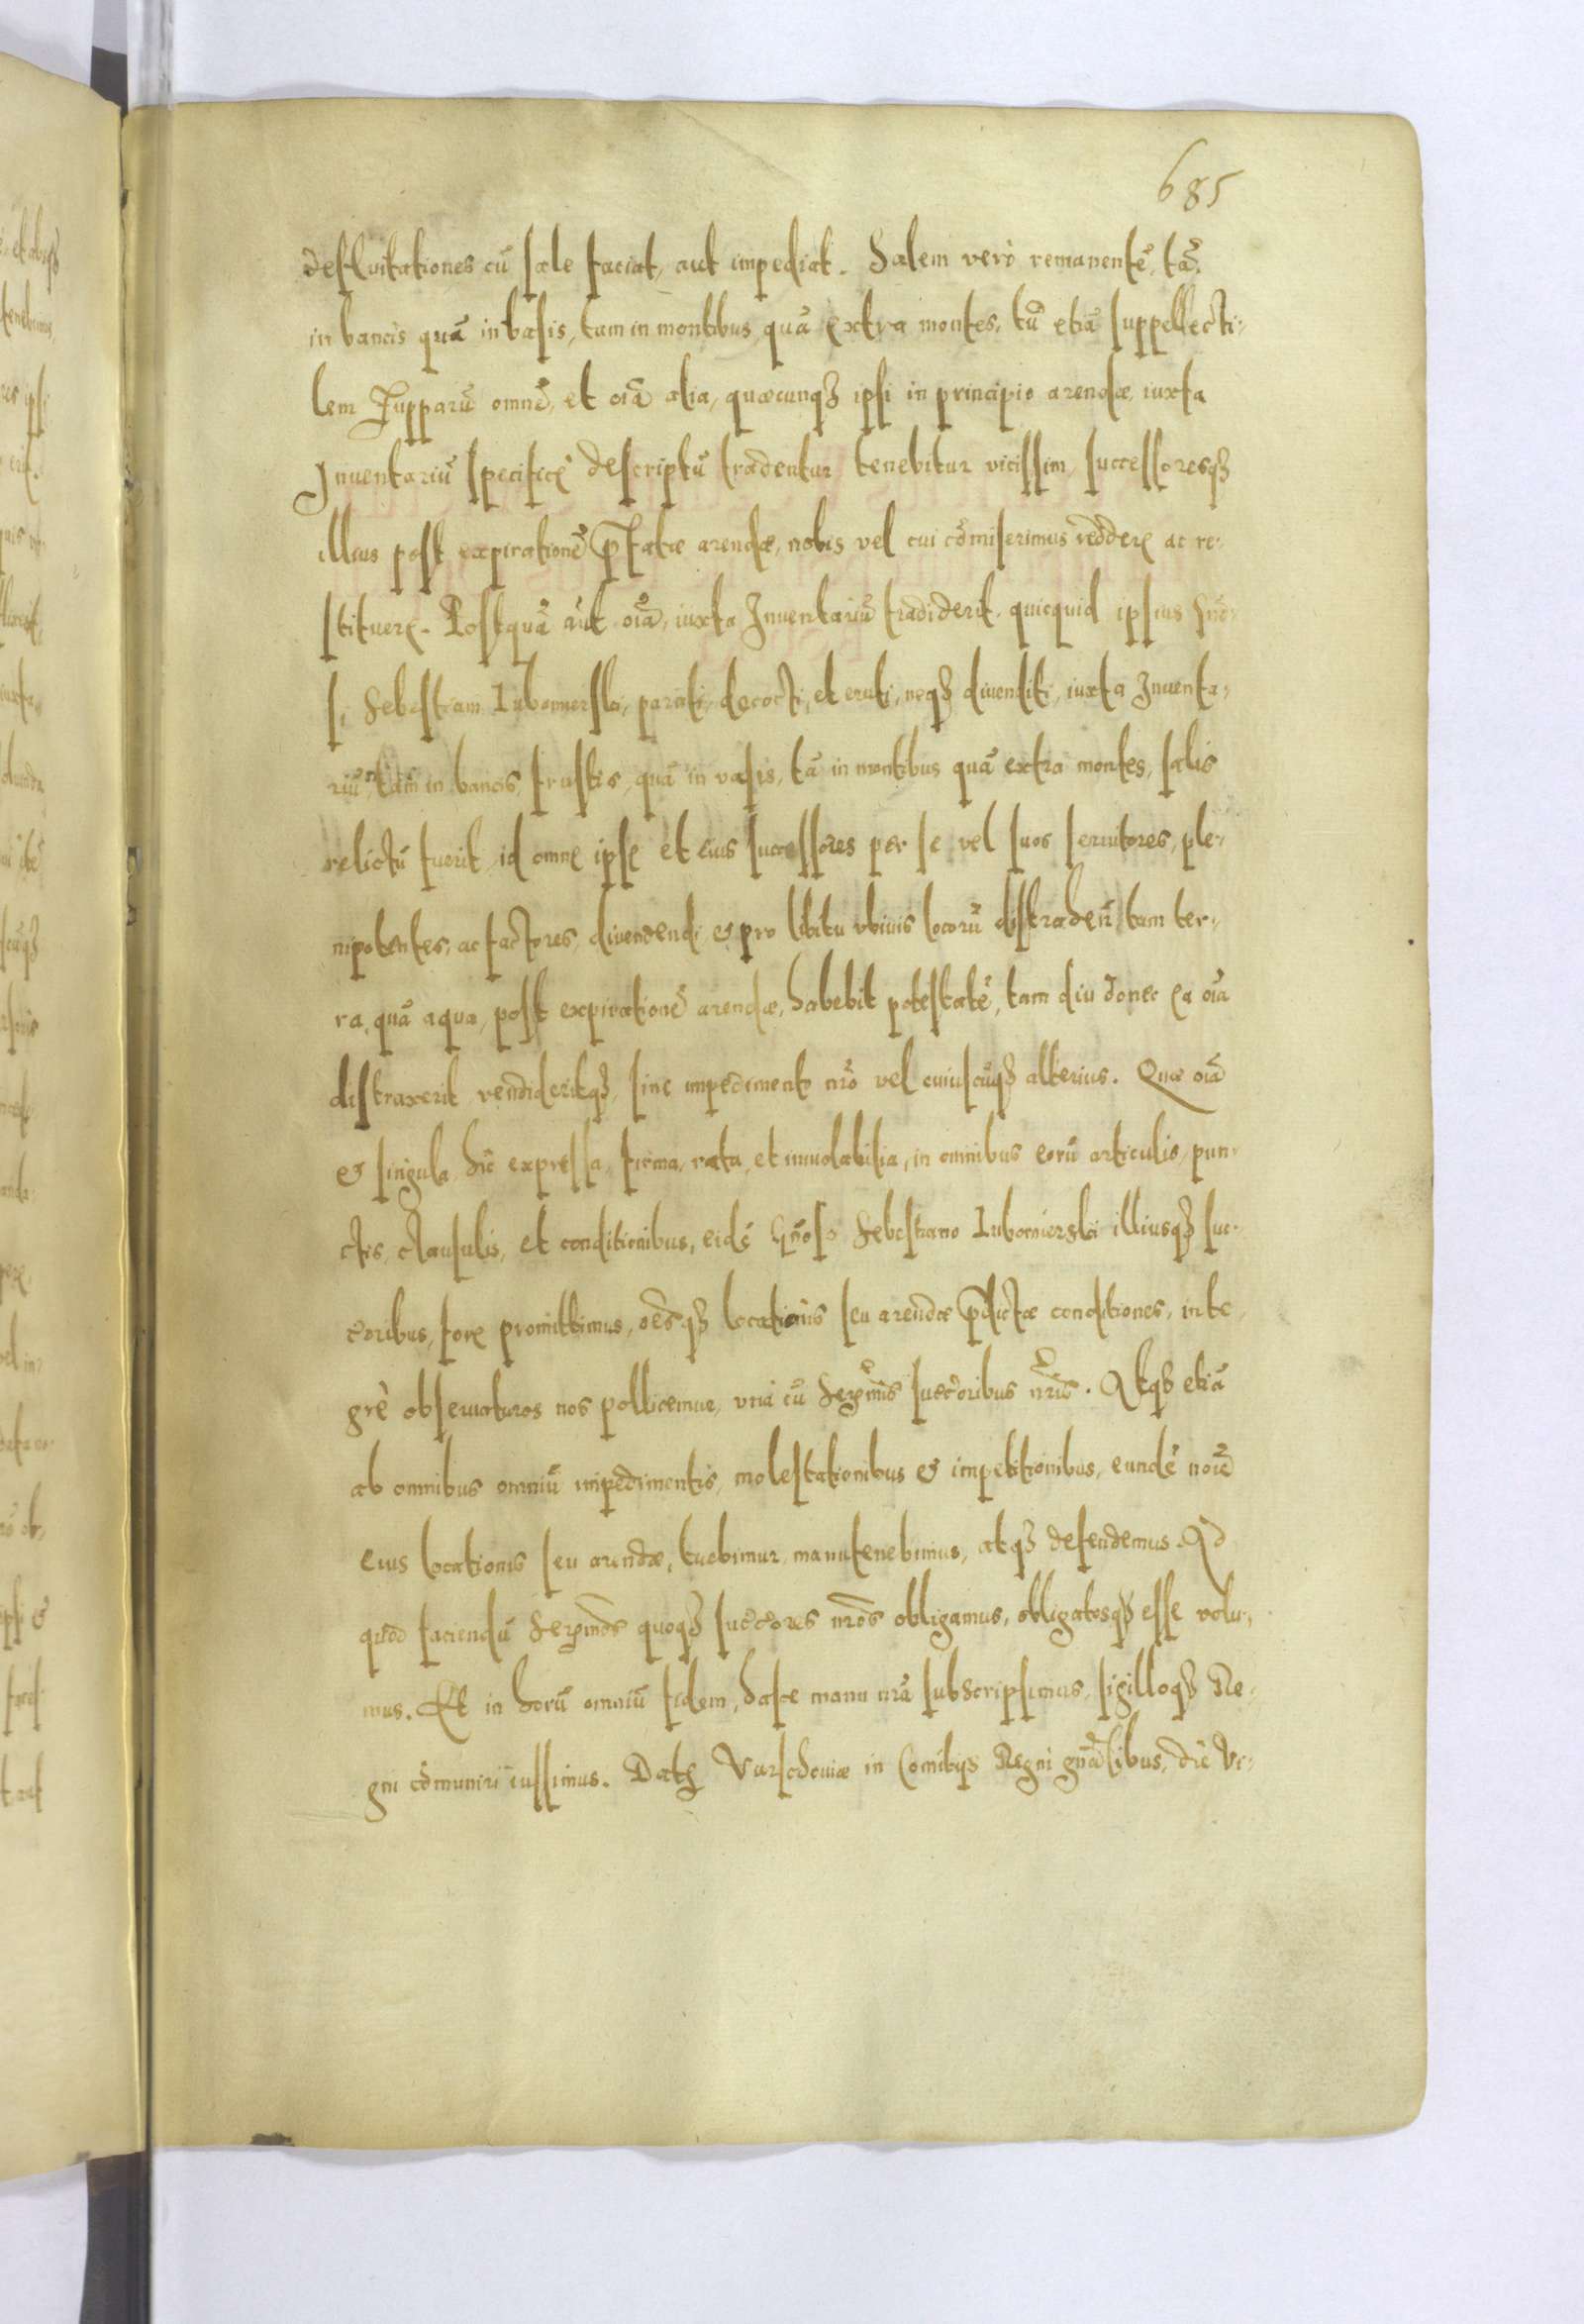 685
defluitationes cũ sale faciat, aut impediat. Salem verò remanentẽ, tã
in bancis quã in vasis, tam in montibus quã extra montes, tũ etiã suppellecti-
lem Zupparũ omnẽ, et oĩa alia, quæcunqȝ ipsi in principio arendæ, iuxta
Inuentariũ specificẽ descriptũ tradentur tenebitur vicissim, successoresqȝ
illius post expirationẽ p̃fatæ arendæ, nobis vel cui cõmiserimus reddere ac re-
stituere. Postquã aũt oĩa, iuxta Inuentariũ tradiderit, quicquid ipsius
Sebastiani Lubomierski, parati, decocti, et eruti, neqȝ diuenditi, iuxta Inuenta-
riũ, tam in bancis, frustis, quã in vasis, tã in montibus quã extra montes, salis
relictũ fuerit, id omne ipse et eius successores per se vel suos seruitores, ple-
nipotentes, ac factores, diuendendi, et pro libitu vbiuis locorũ distrahendi tam ter-
ra, quã aqua, post expirationẽ arendæ, habebit potestatẽ, tam diu donec ea oĩa
distraxerit vendideritqȝ, sine impedimento nr̃o vel cuiuscũqȝ alterius. Quæ oĩa
et singula hic expressa, firma, rata, et inuiolabilia, in omnibus eorũ articulis, pun-
ctis, clausulis, et conditionibus, eidẽ Gñoso Sebastiano Lubomierski illiusqȝ suc-
c̃oribus, fore promittimus, oẽsqȝ locationis seu arendæ p̃dictæ conditiones, inte
grè obseruaturos nos pollicemur, vnà cũ Serẽmis succ̃oribus nr̃is. Atqȝ etiã
ab omnibus omniũ impedimentis, molestationibus et impetitionibus, eundẽ noĩe
eius locationis seu arendæ, tuebimur, manutenebimus, atqȝ defendemus. Ad
quod faciendũ Serẽmos quoqȝ succ̃ores nr̃os obligamus, obligatosqȝ esse volu-
mus. Et in horũ omniũ fidem, hasce manu nr̃a subscripsimus, sigilloqȝ Re-
gni cõmuniri iussimus. Dat Varschouiæ in Comitijs Regni gñalibus, die Vi-